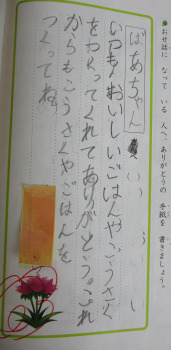 おせ話になっている人へ、ありがとうの手紙を書きましょう。
ばあちゃん
へ
いつもおいしいごはんやこうさく
をつくってくれてありがとう。これ
からもこうさくやごはんを
つくってね。